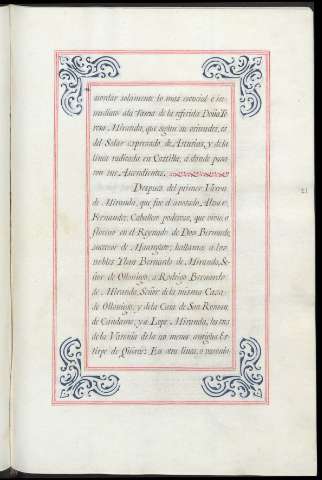 acordar solamente lo mas esencial e in-
mediato ala Fama de la referida Doña Te
resa Miranda, que segun su oriundez, es
del Solar expresado de Asturias, y de la
linea radicada en Castilla, á donde pasa
ron sus Ascendientes.
Despues del primer Varon
de Miranda, que fue el anotado, Alvaro
Fernandez, Caballero poderoso, que vivio, o
florecio en el Reynado de Don Bermudo,
sucesor de Mauregato; hallamos a los
nobles Yban Bernardo de Miranda, Se-
ñor de Olloniego, a Rodrigo Bernardo
de Miranda, Señor de la misma Casa
de Olloniego, y de la Casa de San Roman
de Candamo, y a Lope Miranda, hastas
de la Varonia de la no menor antigua Es-
tirpe de Quirós: En otra linea, o
21